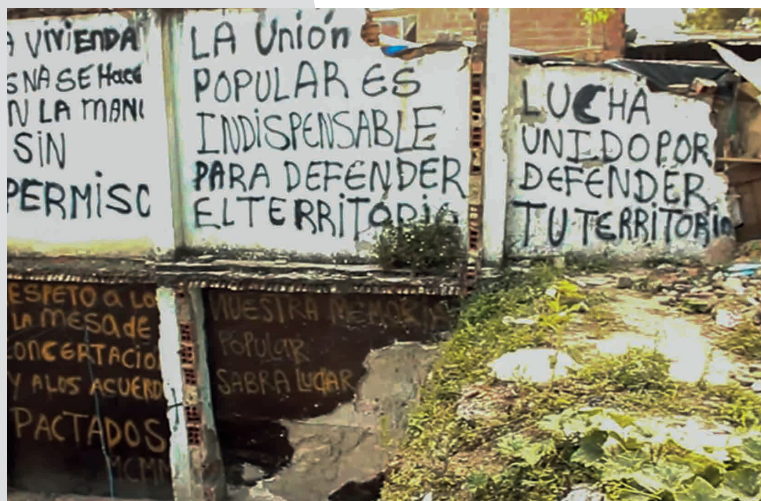 A VIVIENDA
SNA SE HACE
N LA MANI
SIN
PERMISO
LA Unión
POPULAR ES
INDISPENSABLE
PARA DEFENDER
EL TERRITORIO
LUCHA
UNIDO POR
DEFENDER
TU TERRITORIO
ESPETO A LO
LA MESA de
ONCERTACIO
Y A LOS ACUERD
PACTADOS
MCMM
NUESTRA MEMORIA
POPULAR
SABRA LUCHAR